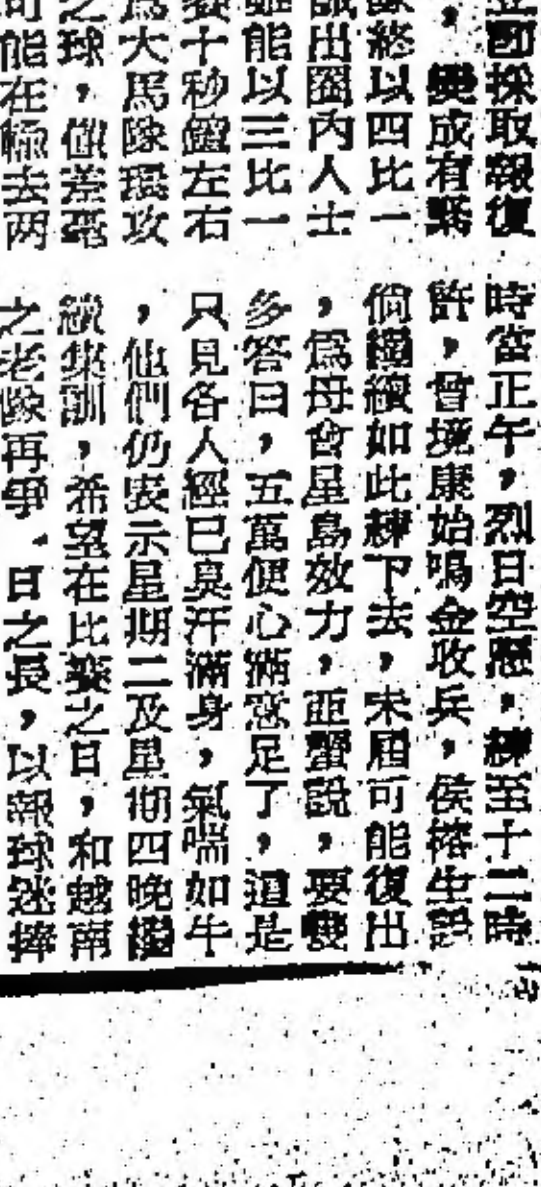 立即採取報復
，變成有緊
隊終以四比一
諷出圈內人士
雖能以三比一
賽十秒鐘左右
爲大馬隊環攻
之球，僅差毫
可能在輸去两
時當正午，烈日空懸，練至十二時
許，曾境康始鳴金收兵，侯榕生說
倘繼續如此練下去，未屆可能復出
，爲母會星島效力，
說，要幾
多答曰，五萬便心滿意足了，這是
只見各人經已臭汗滿身，氣喘如牛
，他們仍表示星期二及星期四晚繼
續集訓，希望在比賽之日，和越南
之老隊再爭一日之長，以報球迷捧